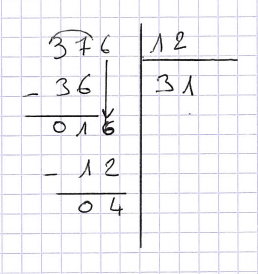 376 12
- 36 31
016
- 12
04